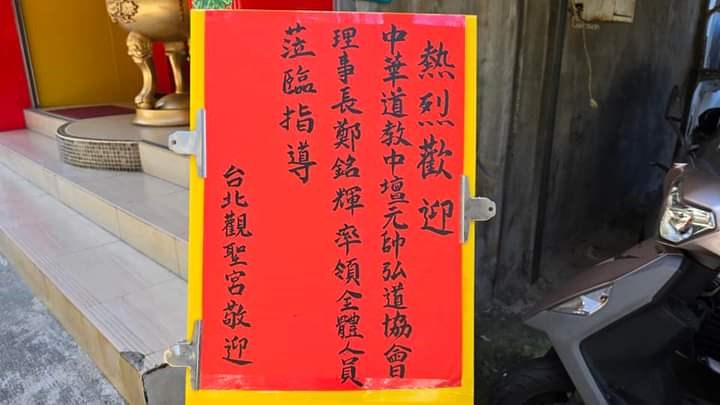 熱烈歡迎
中華道教中壇元帥弘道協會
理事長鄭銘輝率領全體人員
蒞臨指導
台北觀聖宮敬迎